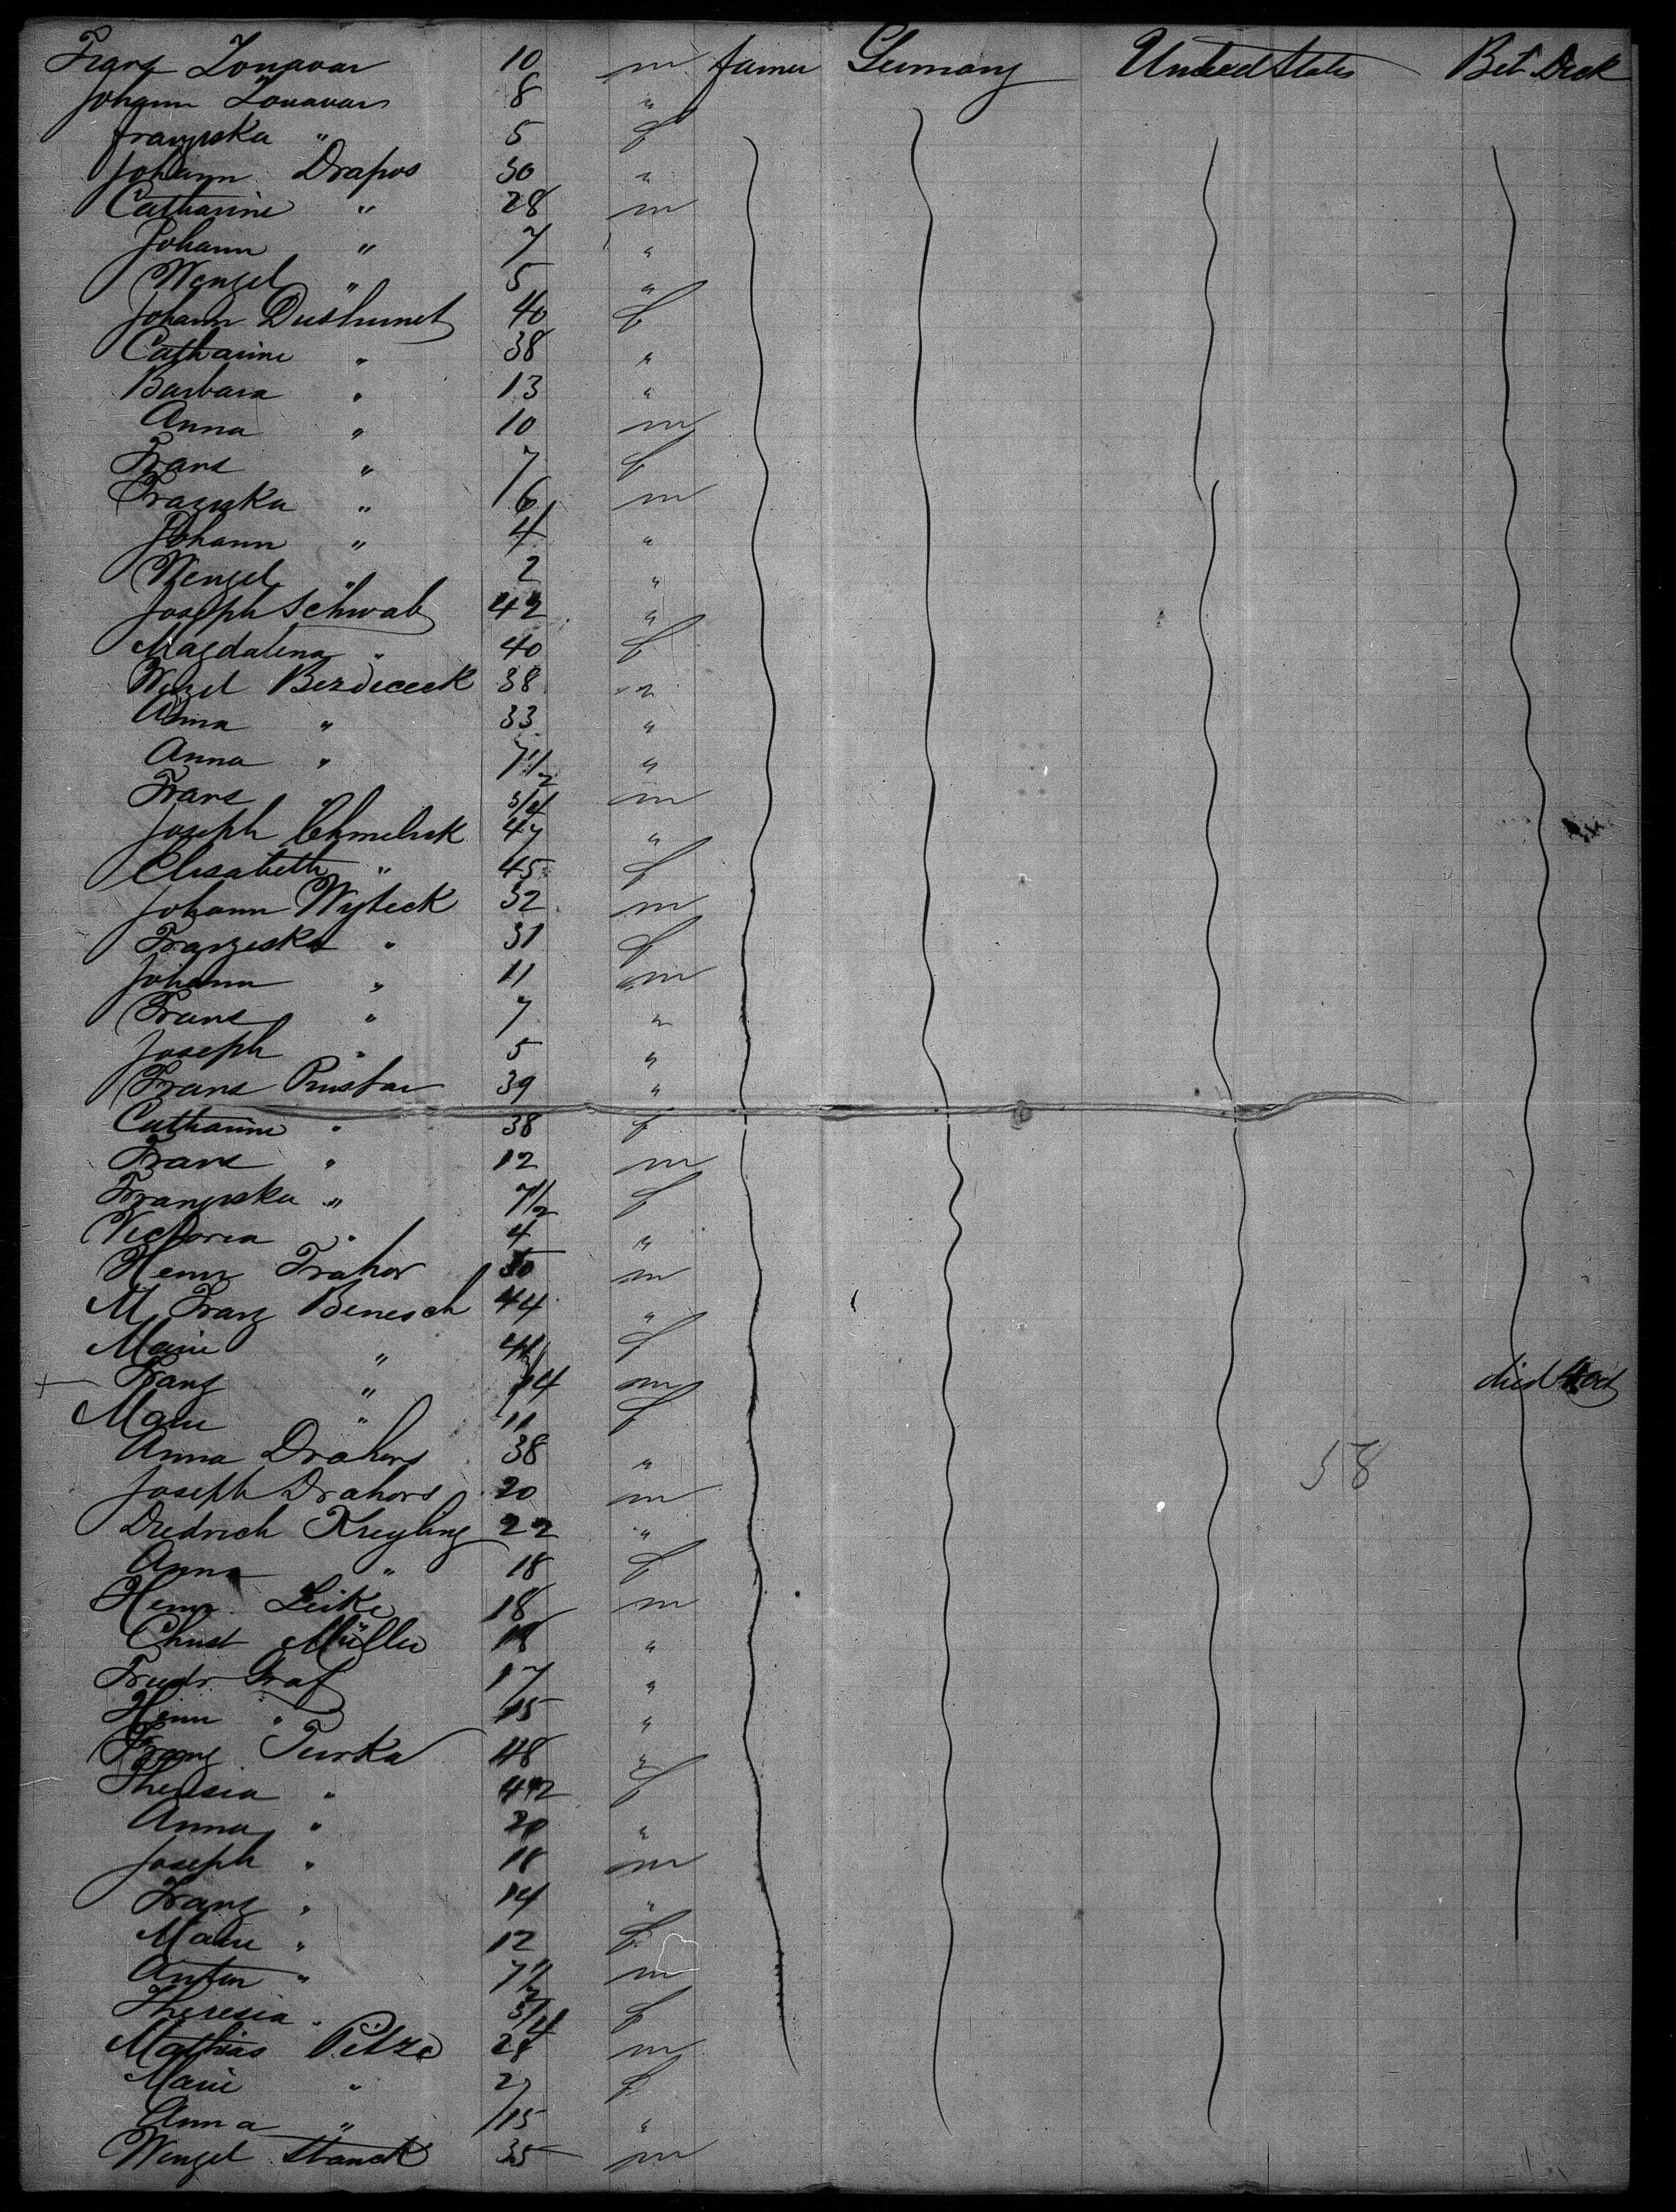 Franz Zouavar 10 m farmer Germany United States Bet. Deck
Johann Zouavar 8 "
Franziska " 5 f
Johann Drapos 30 "
Catharine " 28 m
Johann " 7 "
Wenzel " 5 "
Johann 40 f
Catharine " 38 "
Barbara " 13 "
Anna " 10 m
Franz " 7 f
Franziska " 6 m
Johann " 4 "
Wenzel " 2 "
Joseph Schwab 42 "
Magdalena " 40 f
Wenzel Bezdeceek 38 m
Anna " 33 "
Anna " 7 1/2 "
Franz 3/4 m
Joseph Chmelick 47 "
Elisabeth " 45 f
Johann Wyteck 32 m
Franziska " 31 f
Johann " 11 m
Franz " 7 "
Joseph " 5 "
Franz 39 "
Catharine " 38 f
Franz " 12 m
Franziska " 7 1/2 f
Victoria " 4 "
Henr Trahor m
M. Franz Benesch 44 "
Marie " f
Franz " 14 m died
Marie " 11 f
Anna Drahors 38 "
Joseph Drahors 20 m
58
Diedrich Kreyling 22 "
Anna " 18 f
Henr. Leike 18 m
Christ Müller 18 "
Friedr Graf 17 "
Henr " 15 "
Franz Turka 48 "
Theresia " 42 f
Anna " 20 "
Joseph " 18 m
Franz " 14 "
Marie " 12 f
Anton " 7 1/2 m
Theresia " 3/4 f
Mathias Pitze 28 m
Marie " 27 f
Anna " 15 "
Wenzel Stanek 35 m